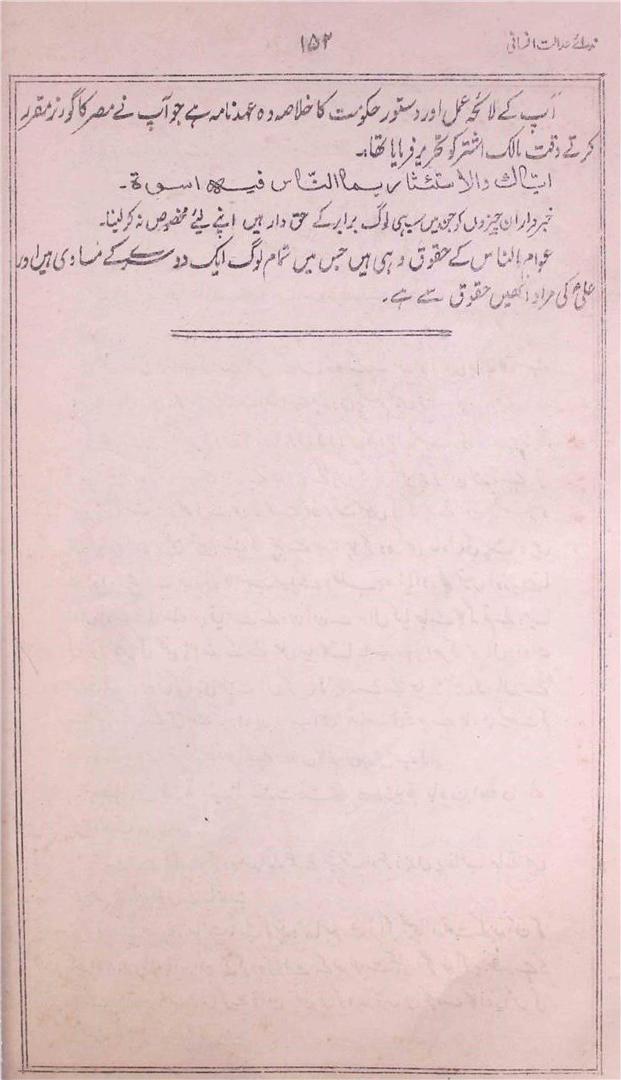 ندائے عدالت انسانی
۱۵۲
آپ کے لائحہ عمل اور دستور حکومت کا خلاصہ وہ عہد نامہ ہے جو آپ نے مصر کا گورنر مقرر
کرتے وقت مالک اشتر کو تحریر فرمایا تھا:۔
ایّاك والاستئثار بما النّاس فیہ اسوۃ۔
خبردار ان چیزوں کو جن میں سبھی لوگ برابر کے حق دار ہیں اپنے لیئے مخصوص نہ کر لینا۔
عوام بالناس کے حقوق وہی ہیں جس میں تمام لوگ ایک دوسرے کے مساوی ہیں اور
علیؑ کی مراد انھیں حقوق سے ہے۔